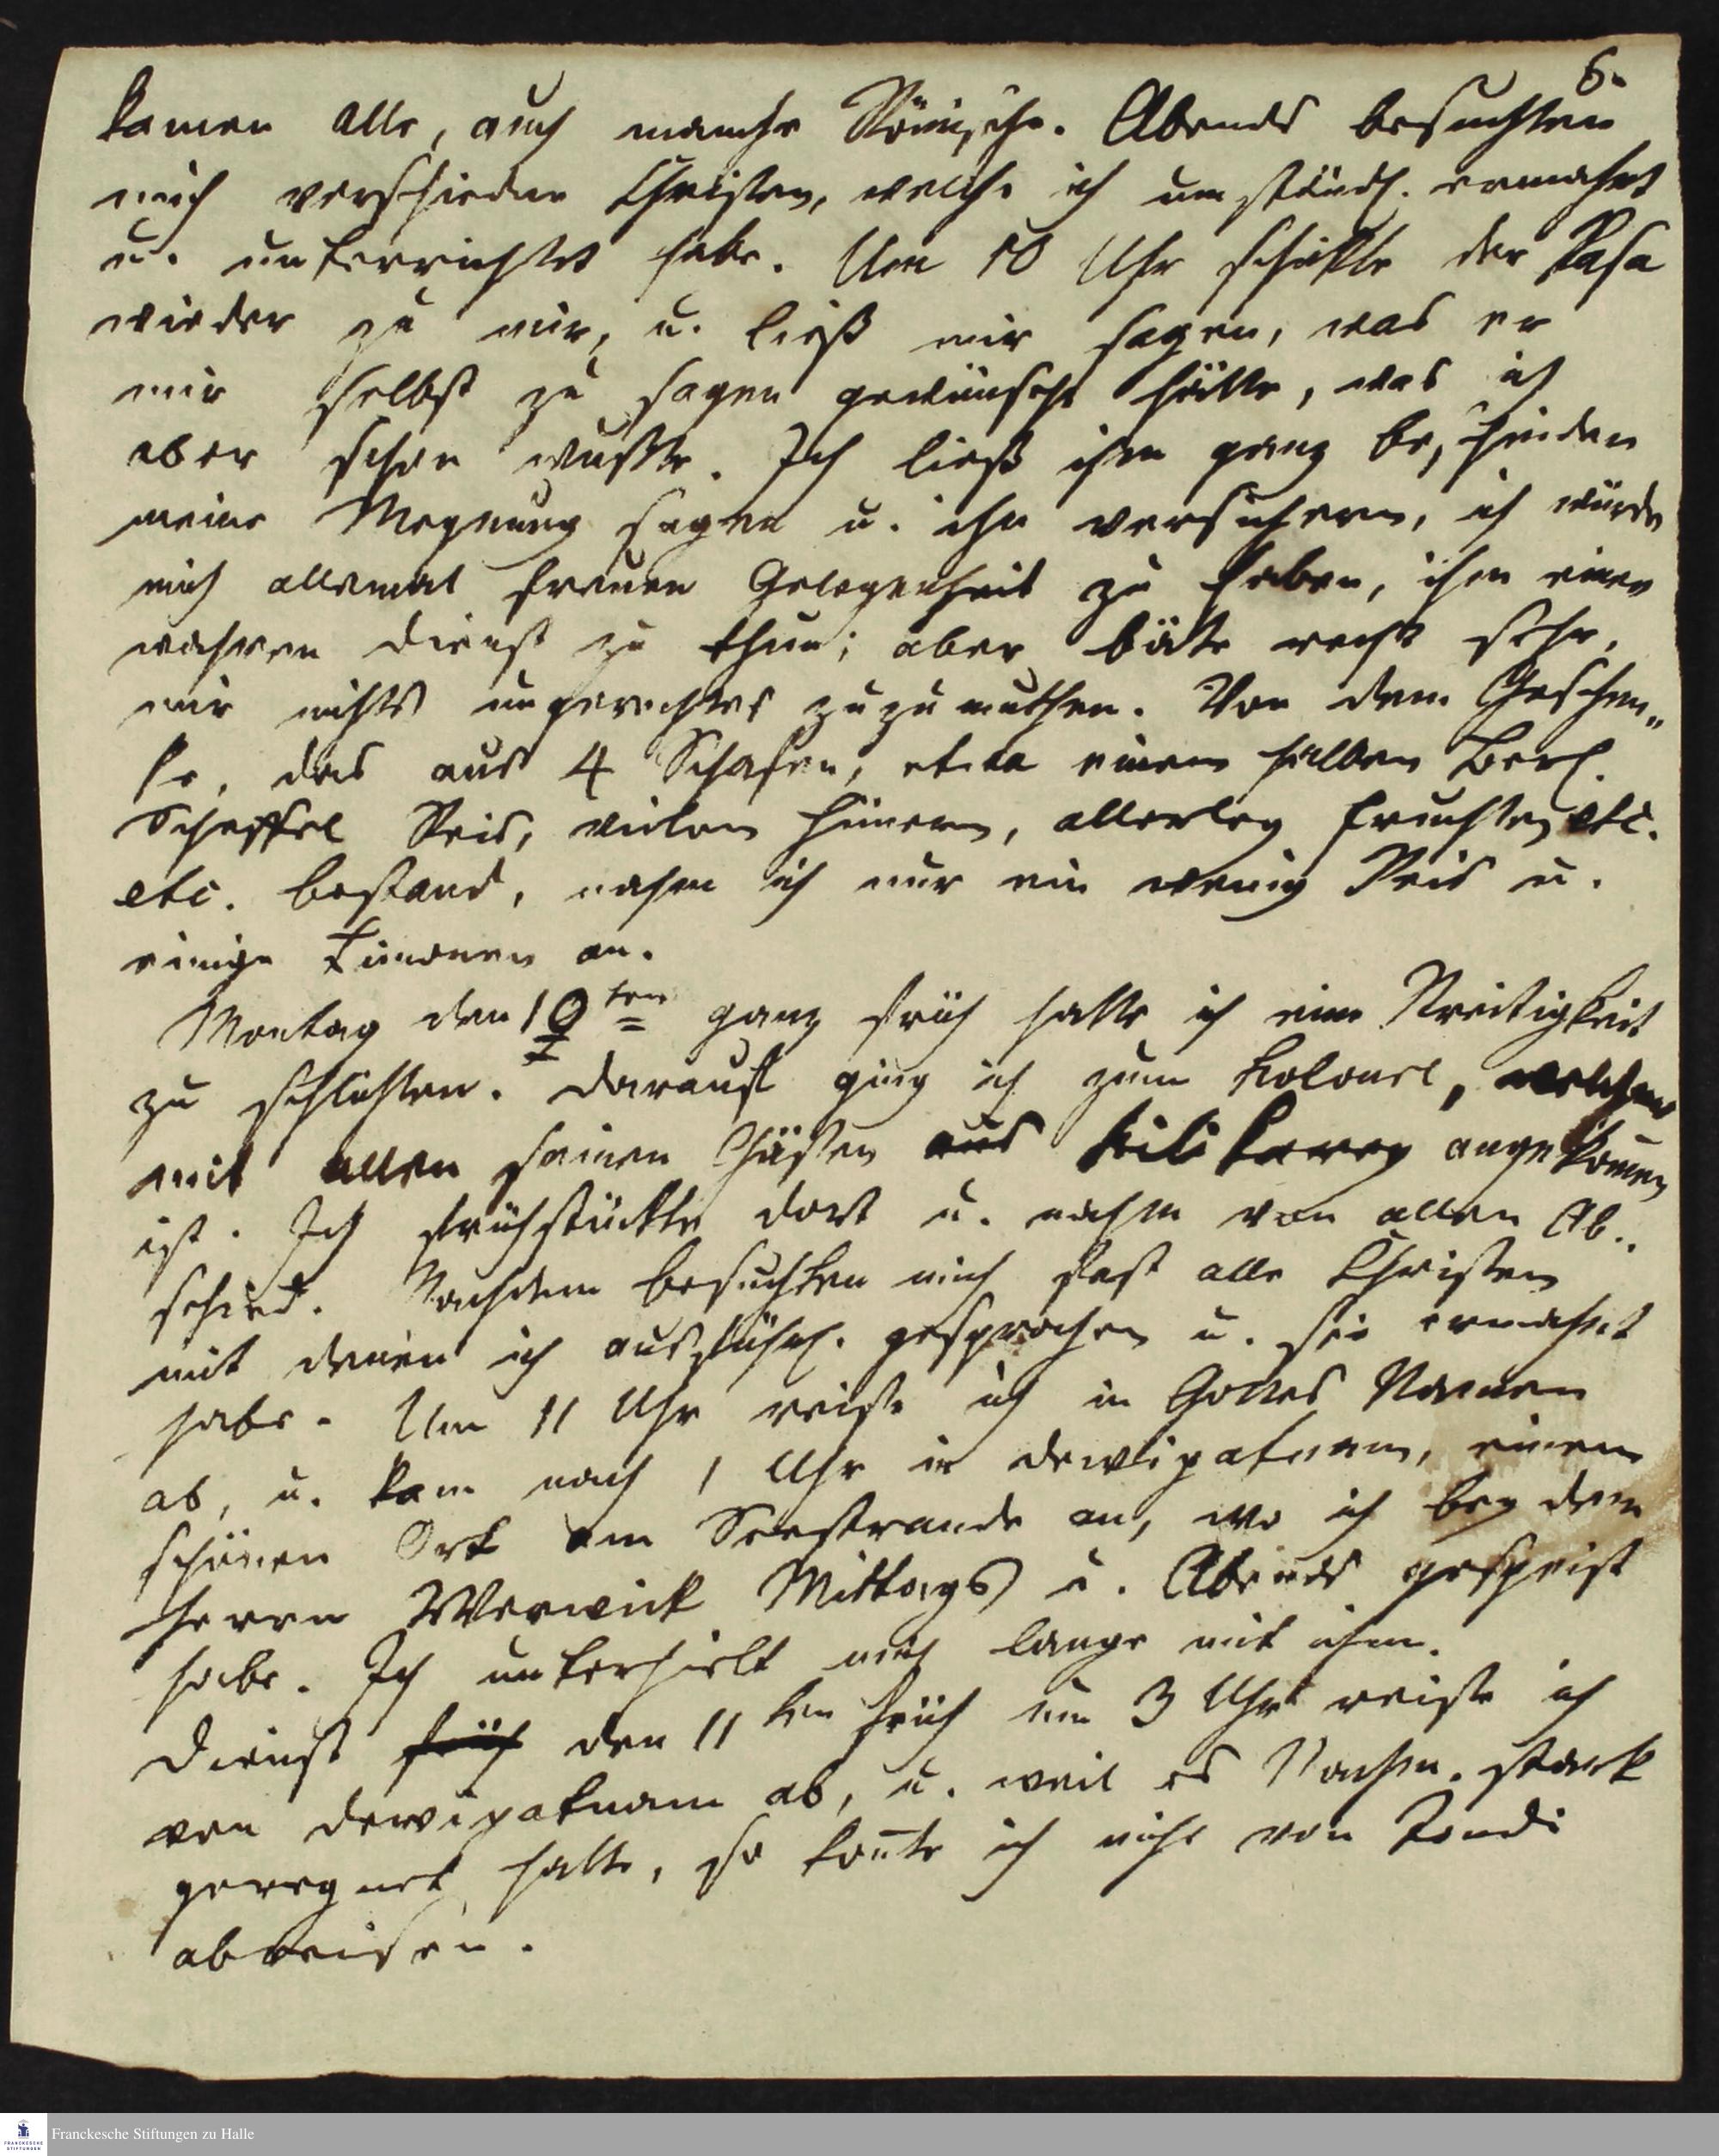 6.
kamen alle, auch manche Römische. Abends besuchten
mich verschiedene Christen, welche ich umständl. ermahnt
u. unterrichtet habe. Um 10 Uhr schikte der Rasa
wieder zu mir, u. ließ mir sagen, was er
mir selbst zu sagen gewünscht hätte, was ich
aber schon wußte. Ich ließ ihm ganz bescheiden
meine Meynung sagen u. ihn versichern, ich würde
mich allemal freuen Gelegenheit zu haben, ihm einen
wahren Dienst zu thun; aber bäte recht sehr,
mir nichts ungerechtes zuzumuthen. Von dem Geschen„
ke, das aus 4 Schafen, etwa einem halben Berl.
Scheffel Reis, vielen Hünern, allerley Fruchten etc.
etc. bestand, nahm ich nur ein wenig Reis u.
einige Limonen an.
Montag den 10ten ganz früh hatte ich eine Streitigkeit
zu schlichten. Darauf ging ich zum Kolonel, welcher
mit allen seinen Gästen aus Kilikarey angekommen
ist. Ich frühstückte dort u. nahm von allen Ab„
schied. Nachdem besuchten mich fast alle Christen
mit denen ich ausführl. gesprochen u. sie ermahnt
habe. Um 11 Uhr reiste ich in Gottes Namen
ab, u. kam nach 1 Uhr in Dewipatnam, einem
schönen Ort am Seestrande an, wo ich bey dem
Herrn Werwick Mittags u. Abends gespeist
habe. Ich unterhielt mich lange mit ihm.
Dienst früh den 11ten früh um 3 Uhr reiste ich
von Dewipatnam ab, u. weil es Nachm. stark
geregnet hatte, so konte ich nicht von Tondi
abreisen.
Franckesche Stiftungen zu Halle
FRANCKESCHE STIFTUNGEN